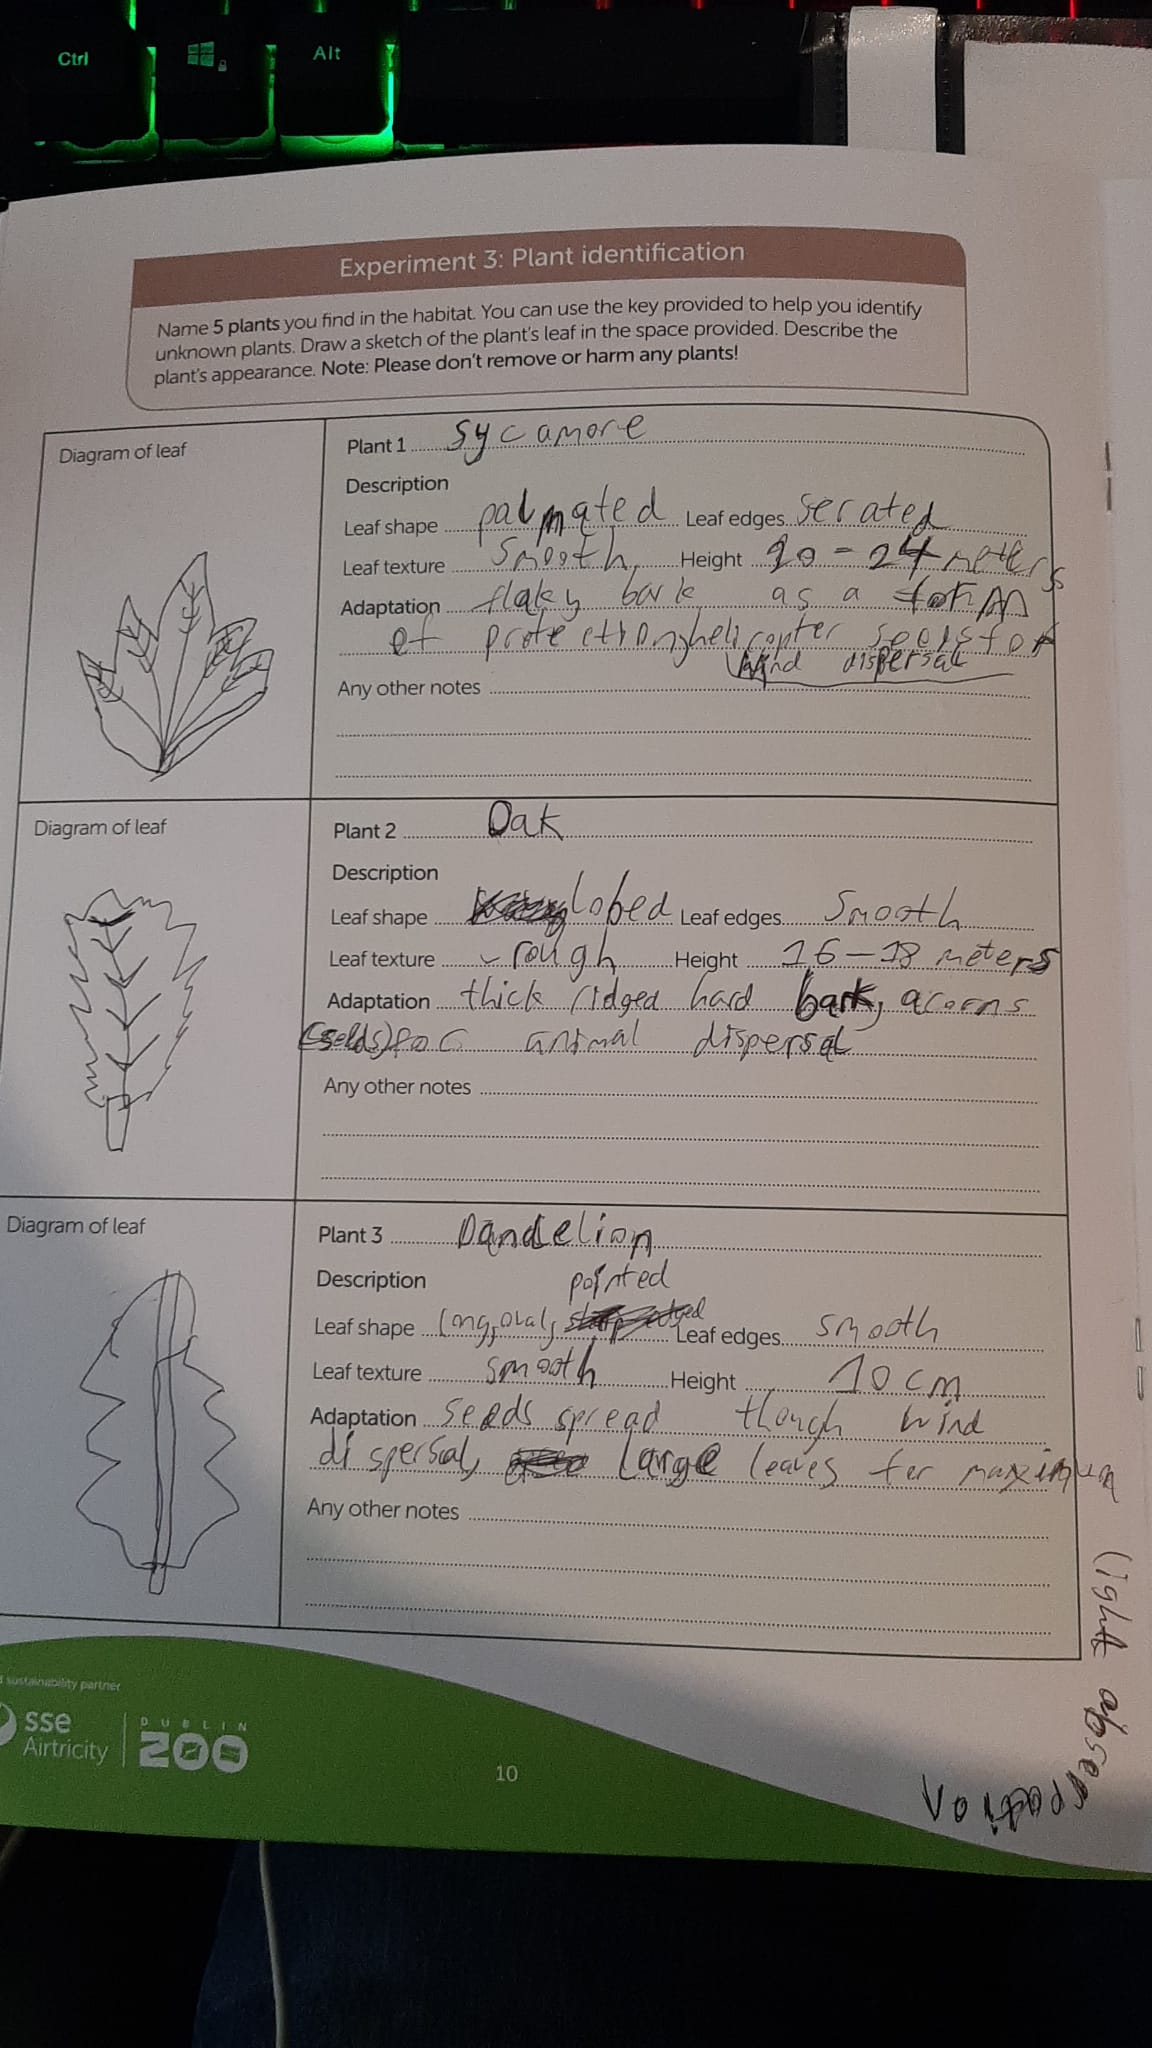 Ctrl
Alt
Experiment 3: Plant identification
Name 5 plants you find in the habitat. You can use the key provided to help you identify
unknown plants. Draw a sketch of the plant's leaf in the space provided. Describe the
plant's appearance. Note: Please don't remove or harm any plants!
Diagram of leaf
Plant 1 sycamore
Description
Leaf shape palmated Leaf edges serated
Leaf texture smooth Height 20-24 meters
Adaptation flaky bark as a form
of protection, helicopter seeds for
wind dispersal
Any other notes
Diagram of leaf
Plant 2 Oak
Description
Leaf shape lobed Leaf edges smooth
Leaf texture rough Height 16-18 meters
Adaptation thick ridged hard bark, acorns
for animal dispersal
Any other notes
Diagram of leaf
Plant 3 Dandelion
Description pointed
Leaf shape long, oval, Leaf edges smooth
Leaf texture smooth Height 10 cm
Adaptation seeds spread though wind
dispersal, large leaves for maximum
light
Any other notes
sustainability partner
sse
Airtricity
DUBLIN
ZOO
10